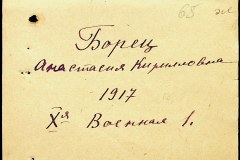 65 ж
Борец
Анастасия Кирилловна
1917
X-я Военная 1.